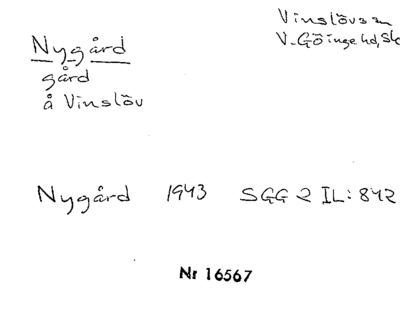 Nygård
gård
å Vinslöv
Vinslövs sn
V. Göinge hd, Sk
Nygård 1943 SGG 2 IL: 842
Nr 16567